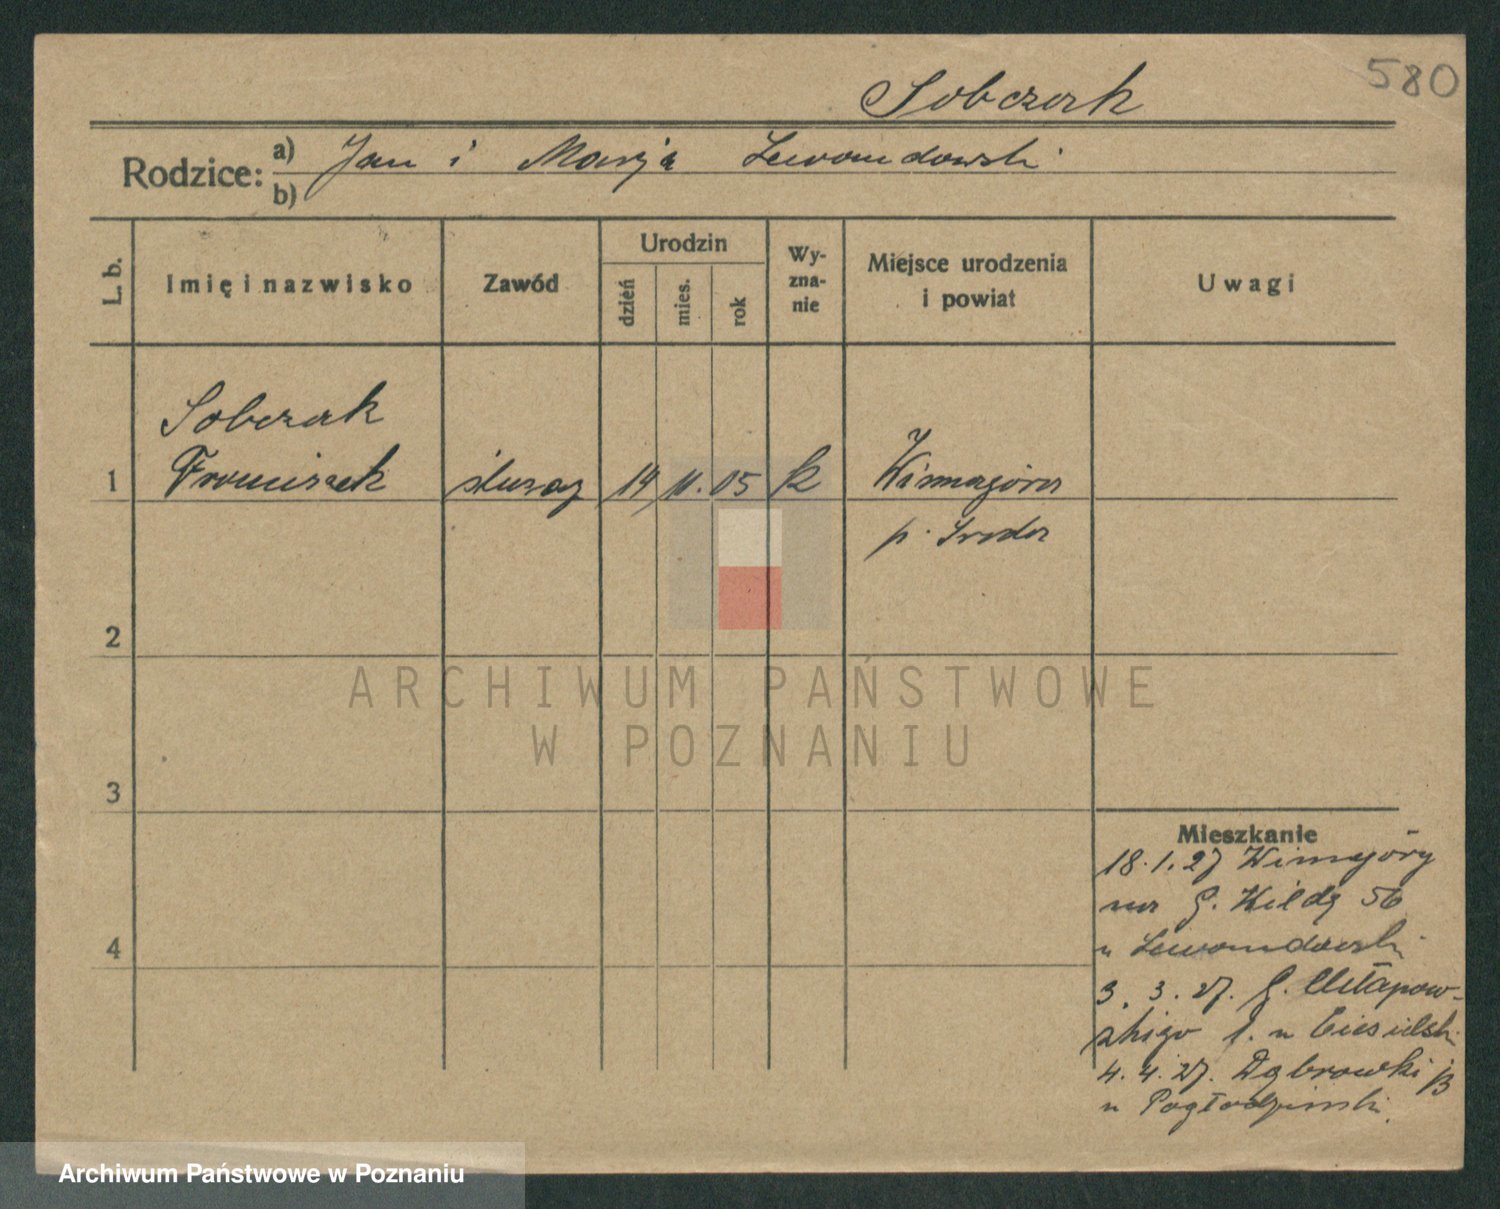 580
Sobczak
Rodzice: a) Jan i Marja Lewandowski
b)
L. b.
Imię i nazwisko
Zawód
Urodzin
dzień
mies.
rok
Wy-
zna-
nie
Miejsce urodzenia
i powiat
Uwagi
Sobczak
1 Franciszek ślusarz 14 11. 05 k Winnagóra
p. Sroda
2
3
4
Mieszkanie
18.1.27 Winnagóry
na G. Wildę 56
u Lewandowski
3. 3. 27. G.
1. u Ciesielski
4. 4. 27. Dąbrowki
u
ARCHIWUM PAŃSTWOWE
W POZNANIU
Archiwum Państwowe w Poznaniu